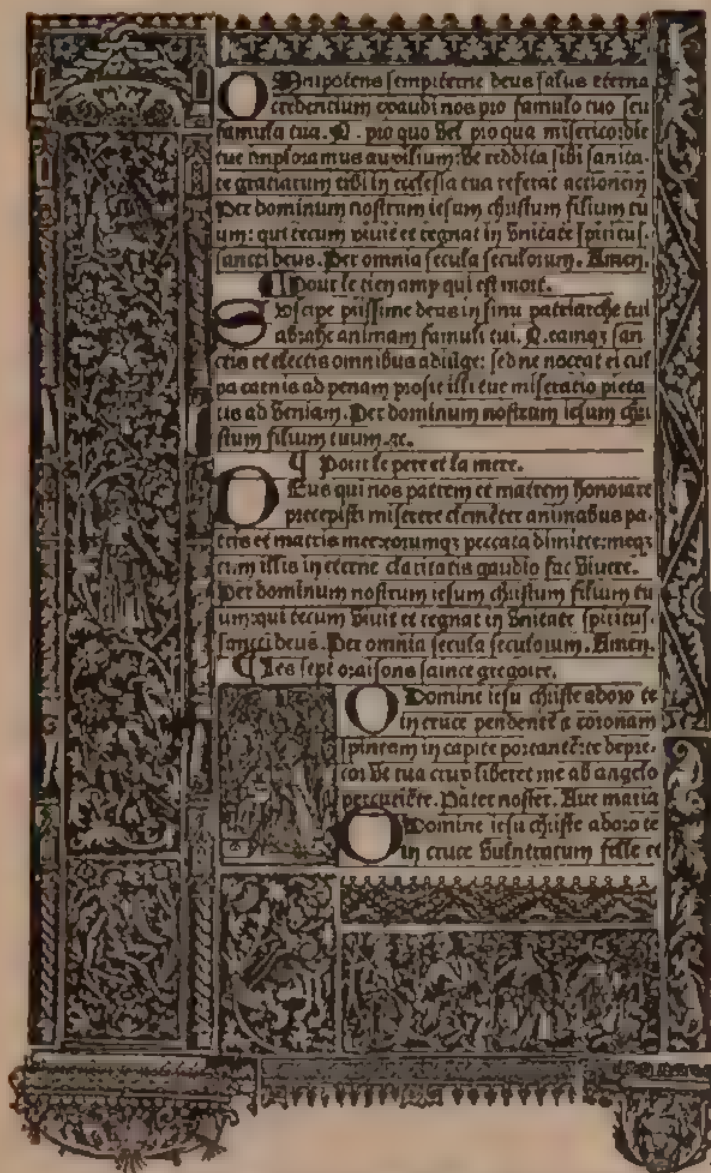 OMnipotens sempiterne deus salus eterna
credencium exaudi nos pro famulo tuo seu
famula tua. N. pro quo vel pro qua misericordie
tue imploramus auxilium: vt reddita sibi sanita-
te gratiarum tibi in ecclesia tua referat actionem
Per dominum nostrum iesum christum filium tu
um: qui tecum viuit et regnat in vnitate spiritus-
sancti deus. Per omnia secula seculorum. Amen.
¶ Pour le tien amy qui est mort.
SVscipe piissime deus in sinu patriarche tui
abrahe animam famuli tui. N. eamqȝ san
ctis et electis omnibus adiūge: sed ne noceat ei cul
pa carnis ad penam prosit illi tue miseratio pieta
tis ad veniam. Per dominum nostrum iesum chri
stum filium tuum ⁊c.
¶ Pour le pere et la mere.
DEus qui nos patrem et matrem honorare
precepisti miserere clemēter animabus pa-
tris et matris mee: eorumqȝ peccata dimitte: meqȝ
cum illis in eterne claritatis gaudio fac viuere.
Per dominum nostrum iesum christum filium tu
um: qui tecum viuit et regnat in vnitate spiritus-
sancti deus. Per omnia secula seculorum. Amen.
¶ Les sept oraisons sainct gregoire.
O Domine iesu christe adoro te
in cruce pendentē ⁊ coronam
spineam in capite portantē: te depre-
cor vt tua crux liberet me ab angelo
percutiēte. Pater noster. Aue maria
O Domine iesu christe adoro te
in cruce vulneratum felle et